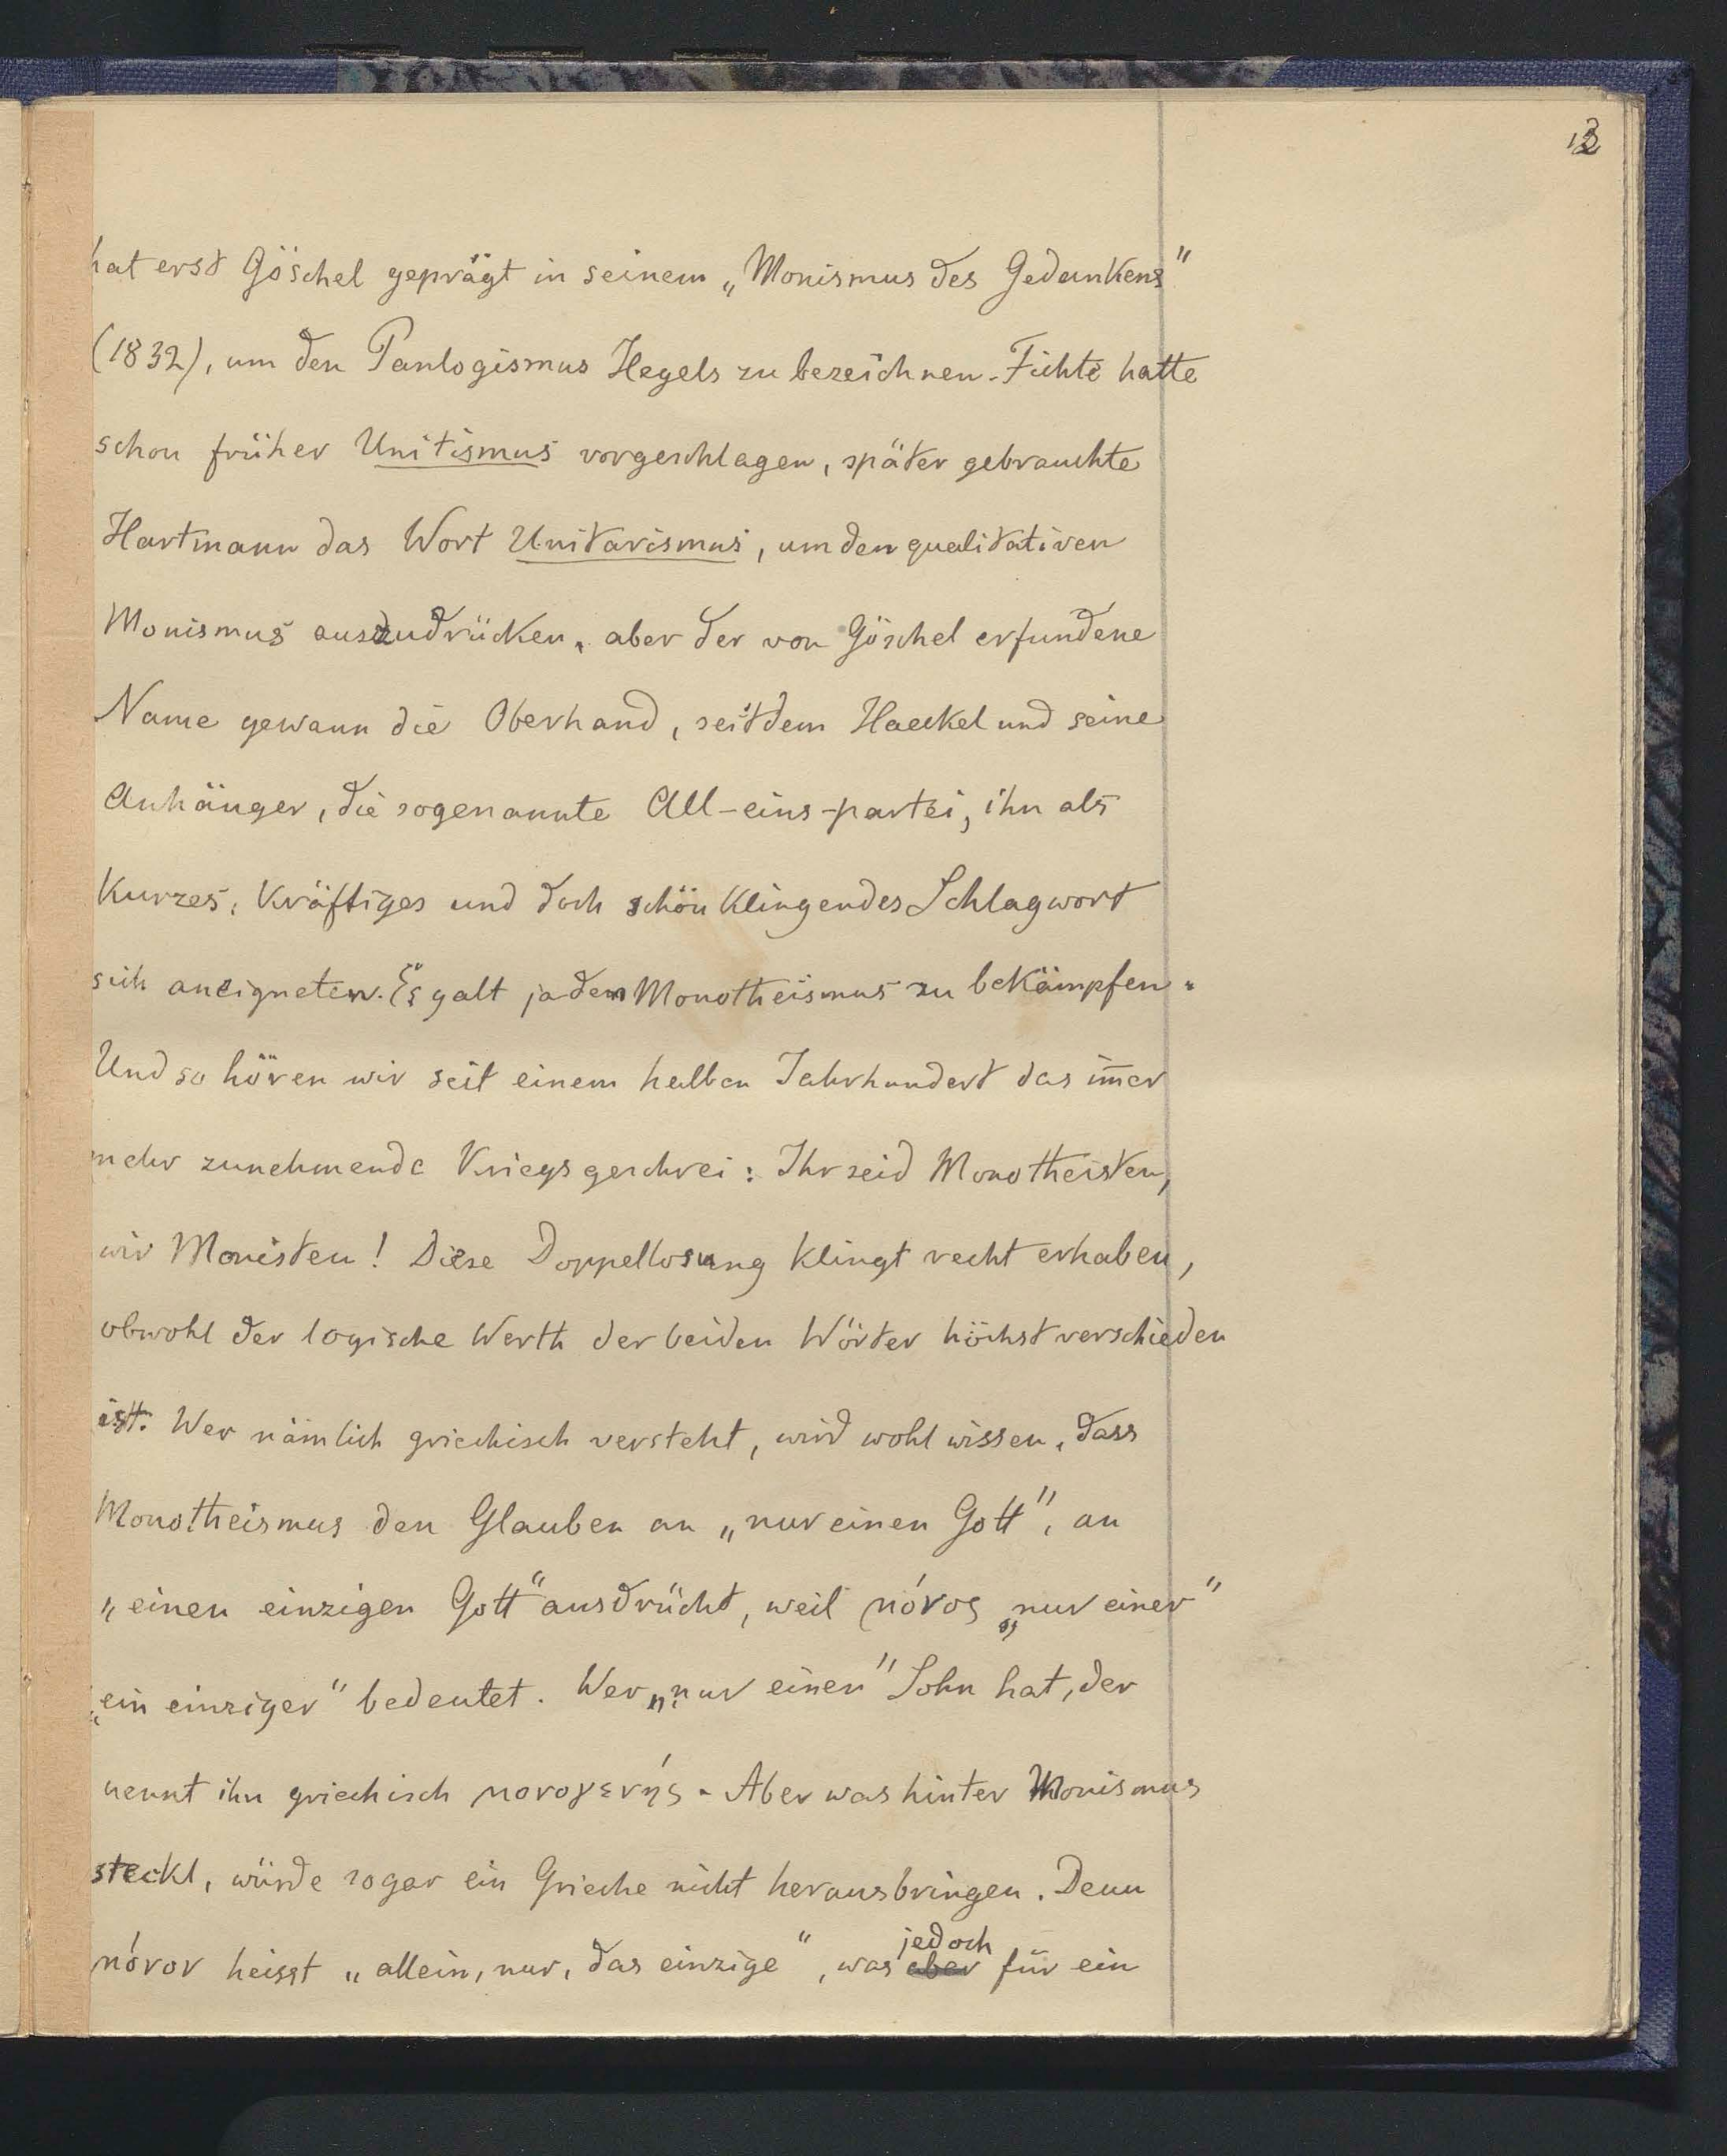 hat erst Göschel geprägt in seinem „Monismus des Gedankens"
(1832), um den Panlogismus Hegels zu bezeichnen. Fichte hatte
schon früher Unitismus vorgeschlagen, später gebrauchte
Hartmann das Wort Unitarismus, um den qualitativen
Monismus auszudrücken, aber der von Göschel erfundene
Name gewann die Oberhand, seitdem Haeckel und seine
Anhänger, die sogenannte All-eins-partei, ihn als
kurzes, kräftiges und doch schön klingendes Schlagwort
sich aneigneten. Es galt ja den Monotheismus zu bekämpfen.
Und so hören wir seit einem halben Jahrhundert das im̄er
mehr zunehmende Kriegsgeschrei: Ihr seid Monotheisten,
wir Monisten! Diese Doppellosung klingt recht erhaben,
obwohl der logische Werth der beiden Wörter höchst verschieden
ist. Wer nämlich griechisch versteht, wird wohl wissen, dass
Monotheismus den Glauben an „nur einen Gott", an
„einen einzigen Gott" ausdrückt, weil μόνος „nur einer"
„ein einziger" bedeutet. Wer „nur einen" Sohn hat, der
nennt ihn griechisch μονογενής. Aber was hinter Monismus
steckt, würde sogar ein Grieche nicht herausbringen. Denn
jedoch
μόνον heisst „allein, nur, das einzige", was aber für ein